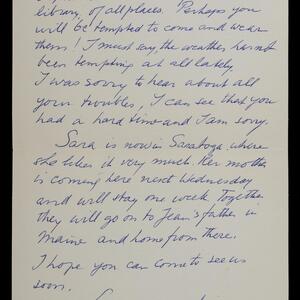 library of all places. Perhaps you
will be tempted to come and wear
them! I must say the weather has not
been tempting at all lately.
I was sorry to hear about all
your troubles, I can see that you
had a hard time and I am sorry.
Sara is now in Saratoga, where
she likes it very much. Her mother
is coming here next Wednesday
and will stay one week. Together
they will go to Jean's father in
Maine and home from there.
I hope you can come to see us
soon.